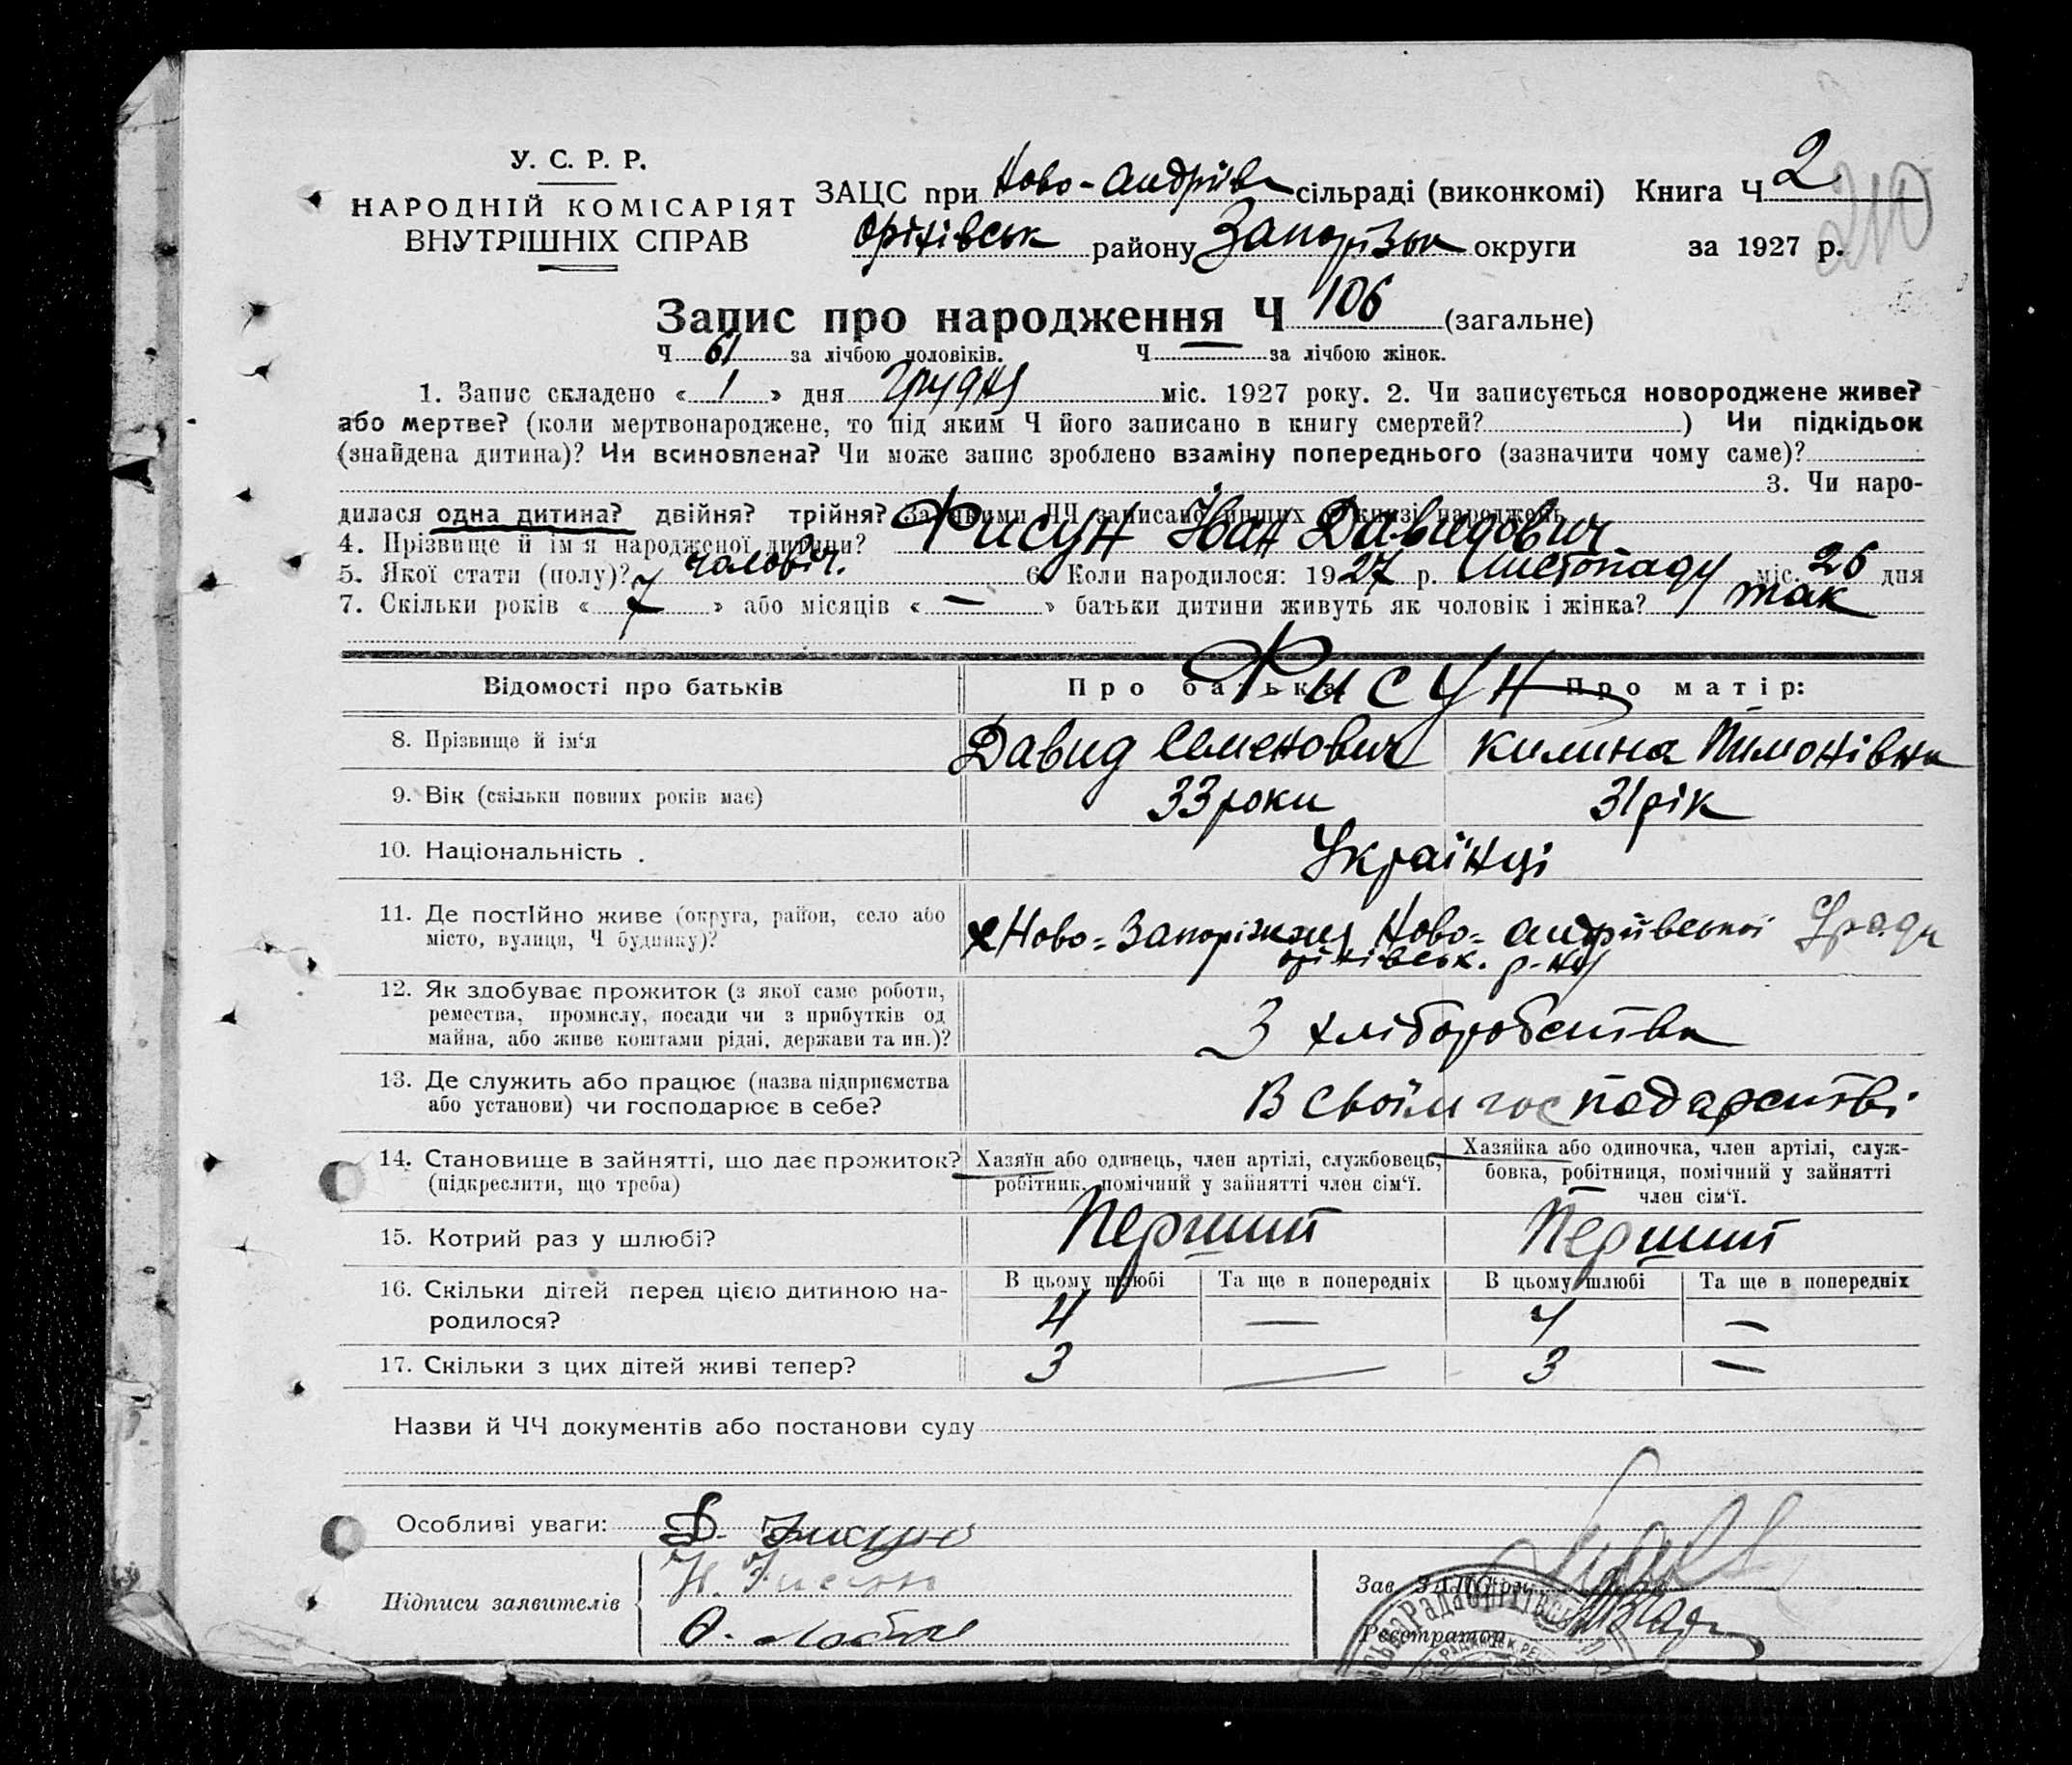 У. С. Р. Р.
НАРОДНІЙ КОМІСАРІЯТ
ВНУТРІШНІХ СПРАВ
ЗАЦС при Ново-Андріїв сільраді (виконкомі) Книга Ч 2
210
Оріхівськ району Запорізьк округи за 1927 р.
Запис про народження Ч 106 (загальне)
Ч 61 за лічбою чоловіків. Ч за лічбою жінок.
1. Запис складено « 1 » дня Грудня міс. 1927 року. 2. Чи записується новороджене живе?
або мертве? (коли мертвонароджене, то під яким Ч його записано в книгу смертей? ) Чи підкідьок
(знайдена дитина)? Чи всиновлена? Чи може запис зроблено взаміну попереднього (зазначити чому саме)?
3. Чи наро-
дилася одна дитина? двійня? трійня? За якими ЧЧ записано инших в книзі народжень
4. Прізвище й ім'я народженої дитини? Фисун Іван Давидович
5. Якої стати (полу)? чоловіч. 6. Коли народилося: 1927 р. Листопаду міс. 26 дня
7. Скільки років « 7 » або місяців « — » батьки дитини живуть як чоловік і жінка? так
Відомості про батьків Про батька Про матір:
Фисун
8. Прізвище й ім'я Давид Семенович Килина Тимонівна
9. Вік (скільки повних років має) 33 роки 31 рік
10. Національність . Українці
11. Де постійно живе (округа, район, село або
місто, вулиця, Ч будинку)?
х Ново-Запоріжжя Ново-Андріївської с/ради
Оріхівськ. р-ну
12. Як здобуває прожиток (з якої саме роботи,
ремества, промислу, посади чи з прибутків од
майна, або живе коштами рідні, держави та ин.)?
З хліборобства
13. Де служить або працює (назва підприємства
або установи) чи господарює в себе?
В своїм господарстві
14. Становище в зайнятті, що дає прожиток?
(підкреслити, що треба)
Хазяїн або одинець, член артілі, службовець,
робітник, помічний у зайнятті член сім'ї.
Хазяйка або одиночка, член артілі, служ-
бовка, робітниця, помічний у зайнятті
член сім'ї.
15. Котрий раз у шлюбі? Перший Перший
В цьому шлюбі Та ще в попередніх В цьому шлюбі Та ще в попередніх
16. Скільки дітей перед цією дитиною на-
родилося?
4 — 4 —
17. Скільки з цих дітей живі тепер? 3 — 3 —
Назви й ЧЧ документів або постанови суду
Особливі уваги:
Д. Фисун
Підписи заявителів
Н. Фисун
Зав. ЗАЦС'ом
Реєстратор